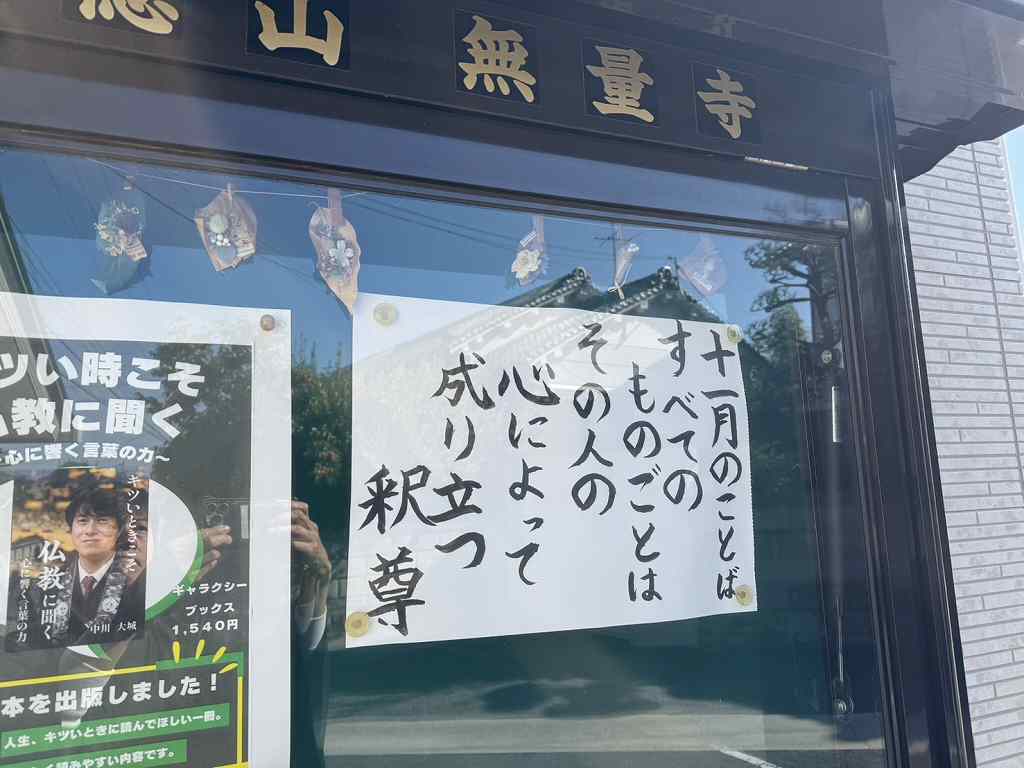 山無量寺
十一月のことば
すべての
ものごとは
その人の
心によって
成り立つ
釈尊
ツい時こそ
教に聞く
心に響く言葉の力～
キツいときこそ
仏教に聞く
心に響く言葉の力
中川 大城
ギャラクシー
ブックス
1,540円
本を出版しました！
人生、キツいときに読んでほしい一冊。
読みやすい内容です。